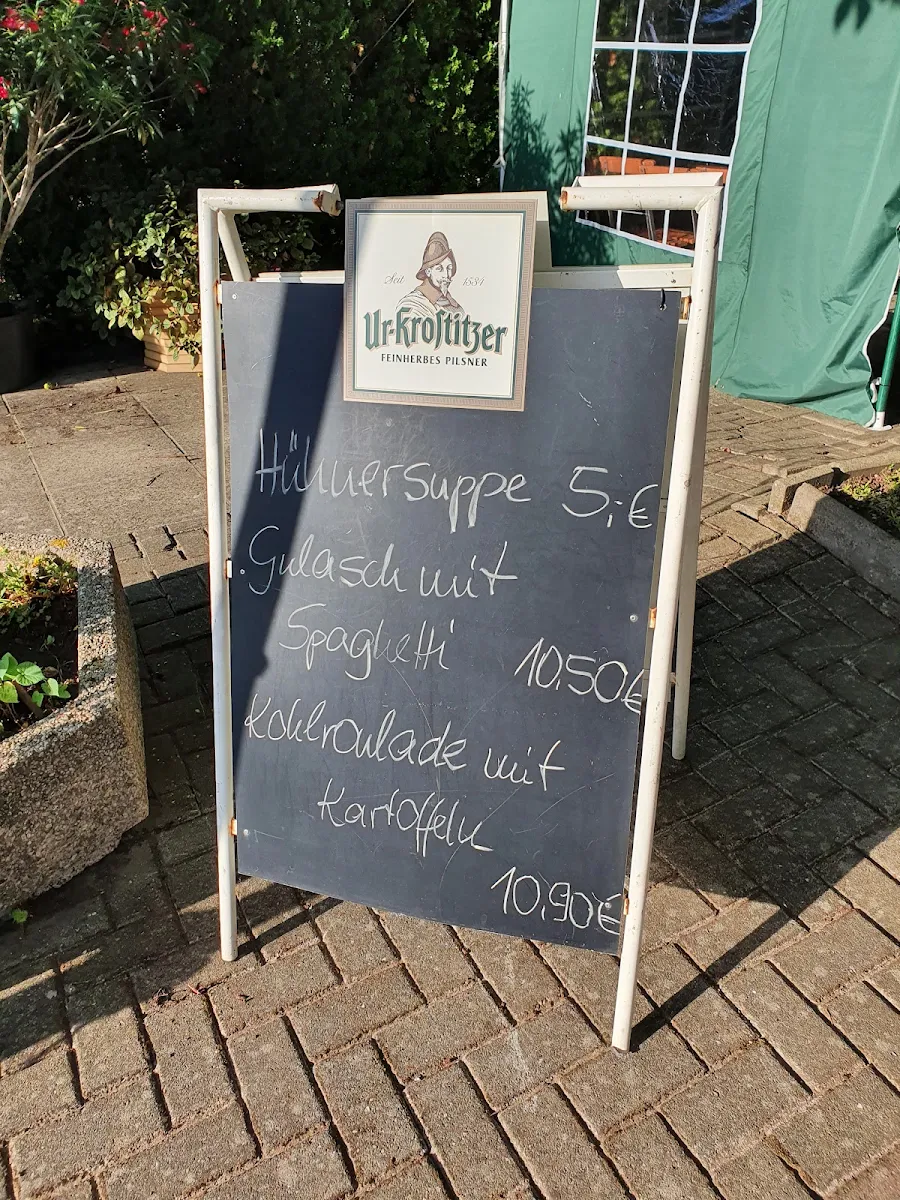 Seit 1534
Ur-Krostitzer
FEINHERBES PILSNER
Hühnersuppe 5,-€
Gulasch mit
Spaghetti 10,50€
Kohlroulade mit
Kartoffeln
10,90€